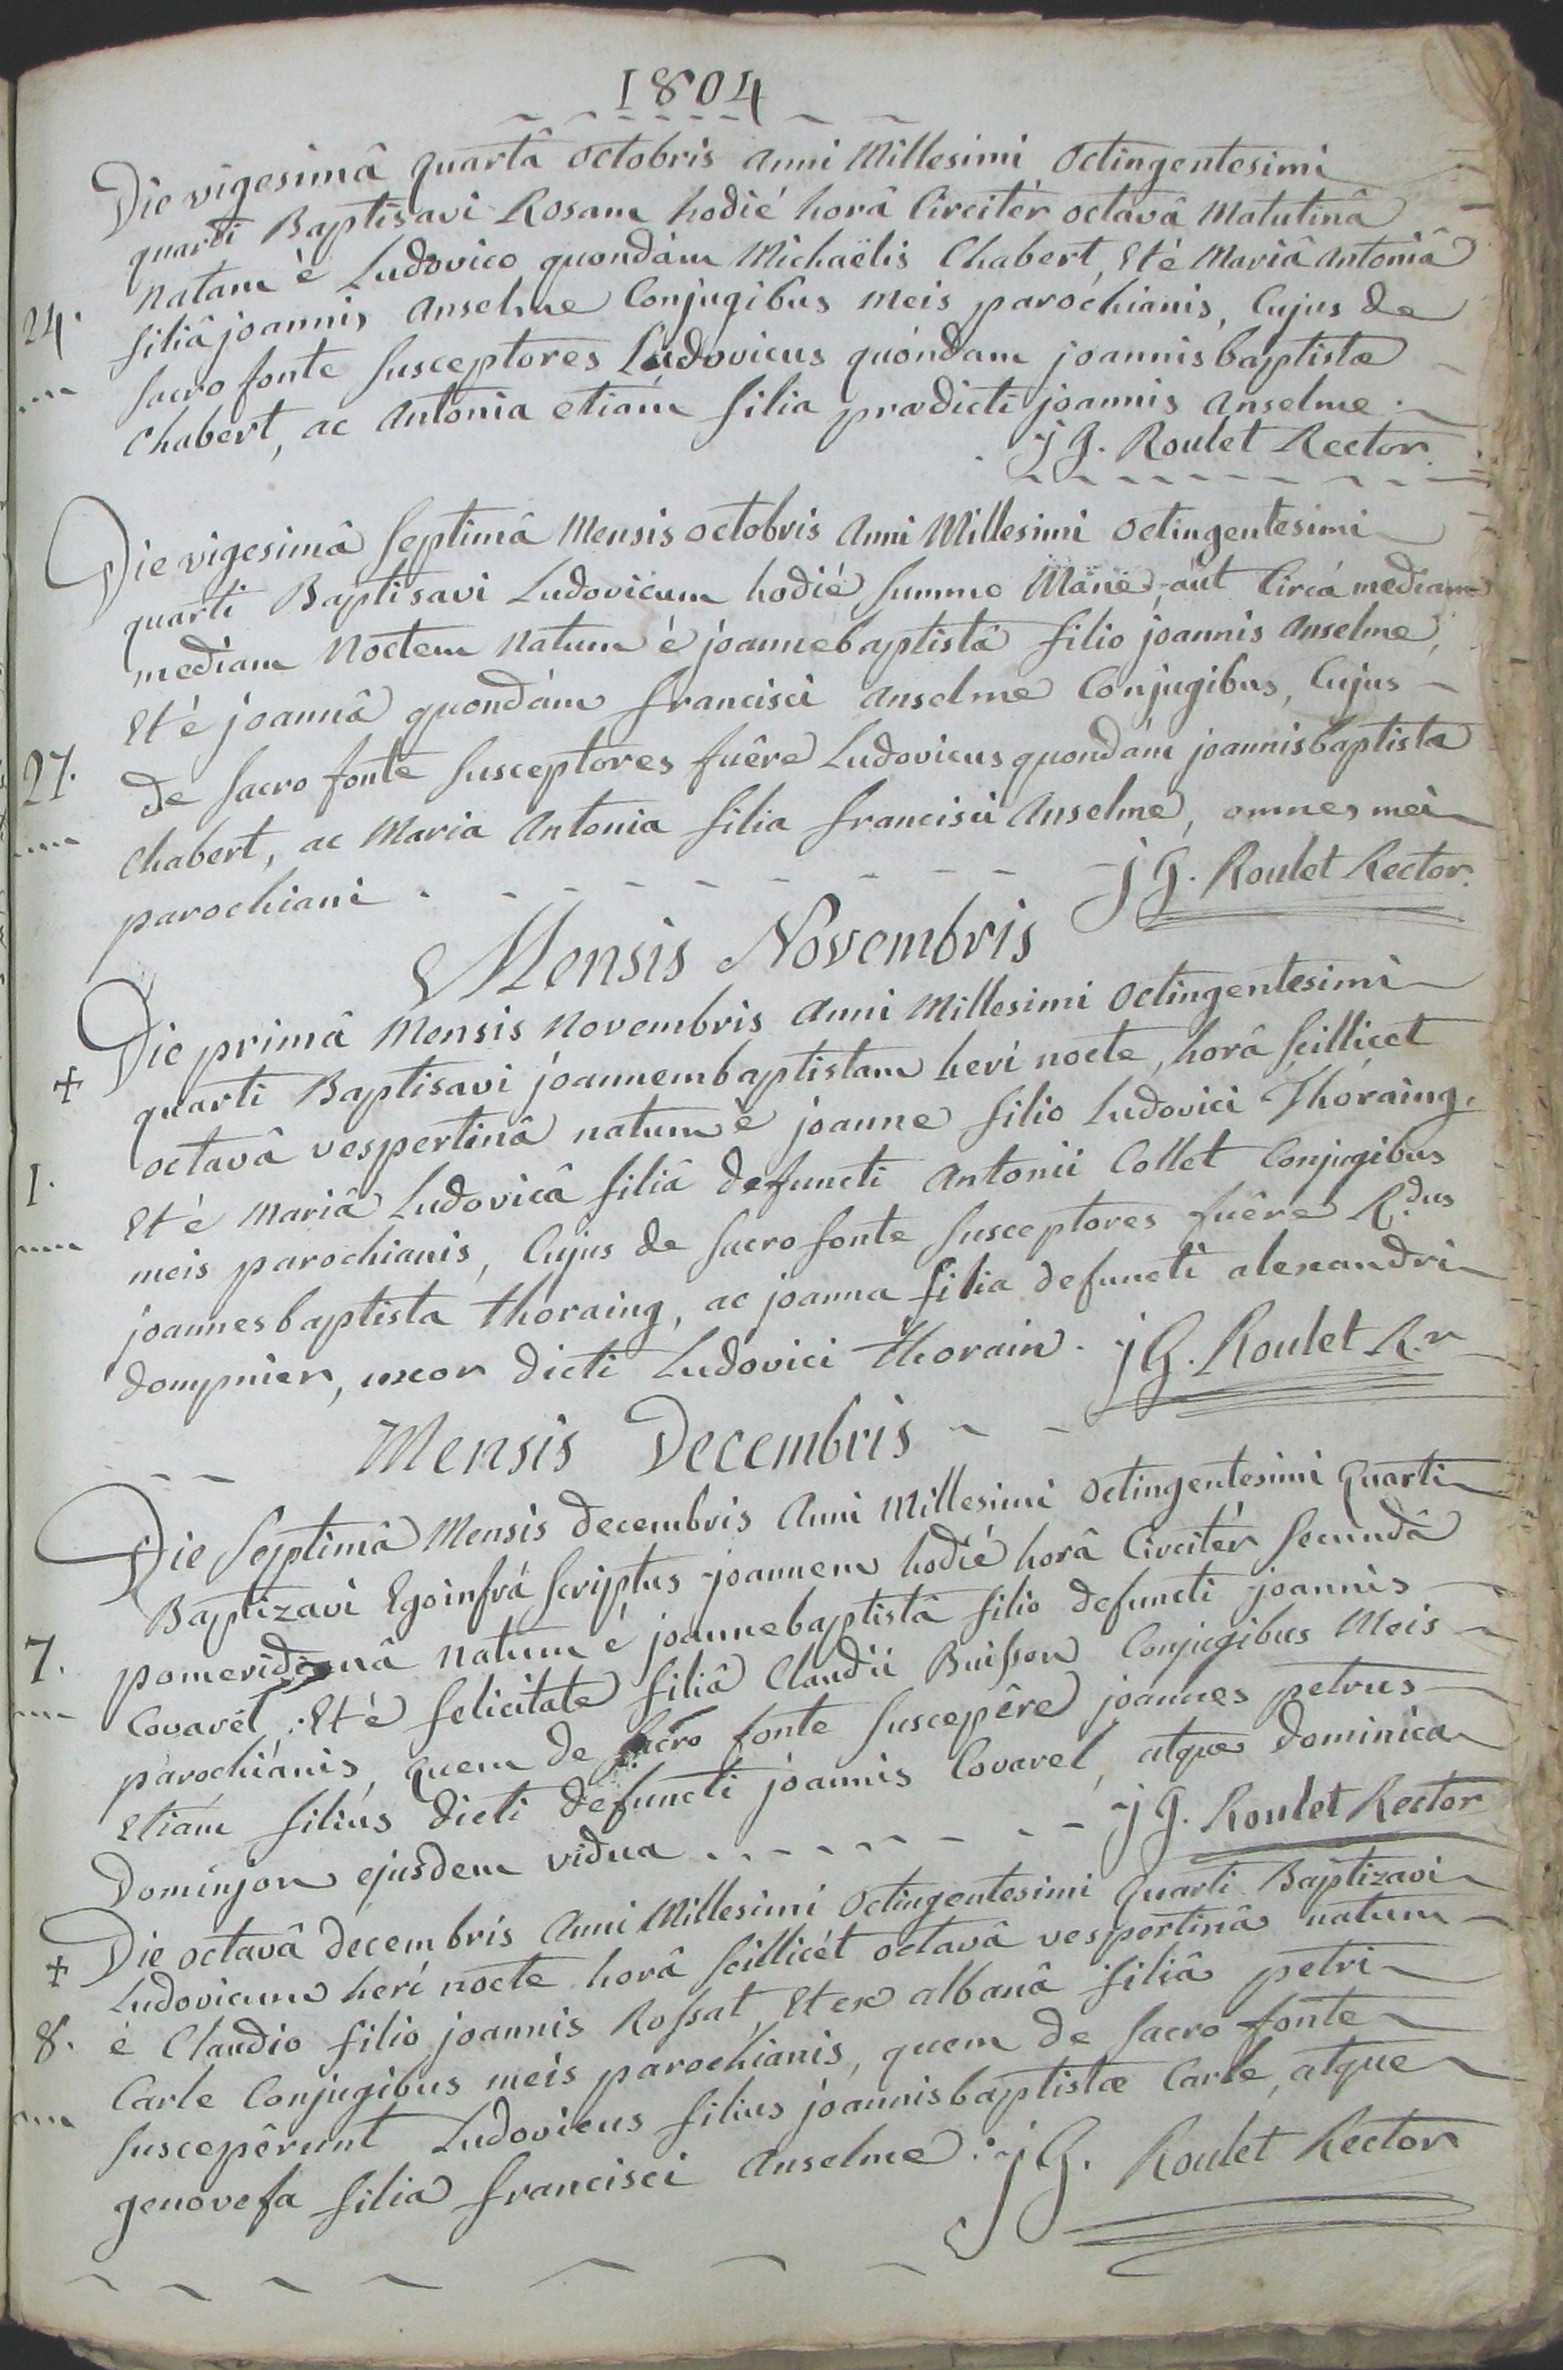 1804
Die vigesimâ quartâ octobris anni Millesimi Octingentesimi
quarti Baptisavi Rosam hodié horâ Circitér octavâ Matutinâ
natam è Ludovico quondám Michaëlis Chabert, Et é Mariâ antoniâ
24. filiâ joannis anselme Conjugibus meis paróchianis, Cujus de
sacro fonte susceptores Ludovicus quóndam joannisbaptistæ
Chabert, ac antonia etiám filia prædicti joannis anselme.
jG. Roulet Rector.
Die vigesimâ septimâ Mensis octobris anni Millesimi octingentesimi
quarti Baptisavi Ludovicum hodié summo Mane, aut Circá mediam
mediam noctem natum é joannebaptistâ filio joannis anselme,
Et é joannâ quondám francisci anselme Conjugibus, Cujus
27. de sacro fonte susceptores fuêre Ludovicus quondám joannisbaptista
Chabert, ac Maria antonia filia francisci anselme, omnes mei
parochiani. jG. Roulet Rector.
Mensis Novembris
+ Die primâ Mensis novembris anni Millesimi octingentesimi
quarti Baptisavi joannembaptistam herí nocte, horâ scillicet
octavâ vespertinâ natum è joanne filio Ludovici Thoraing,
1. Et é Mariâ Ludovicâ filiâ defuncti antonii Collet Conjugibus
meis parochianis, Cujus de sacro fonte susceptores fuêre R.dus
joannesbaptista thoraing, ac joanna filia defuncti alexandri
dompnier, uxor dicti Ludovici thorain. jG. Roulet R.r
Mensis Decembris
Die septimâ Mensis decembris anni Millesimi octingentesimi quarti
Baptizavi Ego infrá scriptus joannem hodié horâ Circitér secundâ
7. pomeridianâ natum é joannebaptistâ filio defuncti joannis
Covarél, Et é felicitate filiâ Claudii Buisson Conjugibus Meis
parochiánis, quem de sacro fonte suscepêre joannes petrus
Etiám filiús dicti defuncti joannis Covarel, atque dominica
Dominjon ejusdem vidua jG. Roulet Rector
+ Die octavâ decembris anni Millesimi octingentesimi quarti Baptizavi
Ludovicum herí nocte horâ scillicét octavâ vespertinâ natum
8. é Claudio filio joannis Rossat, Et ex albanâ filiâ petri
Carle Conjugibus meis paroehianis, quem de sacro fonte
suscepêrunt Ludovicus filius joannisbaptistæ Carle, atque
genovefa filia francisci anselme. jG. Roulet Rector